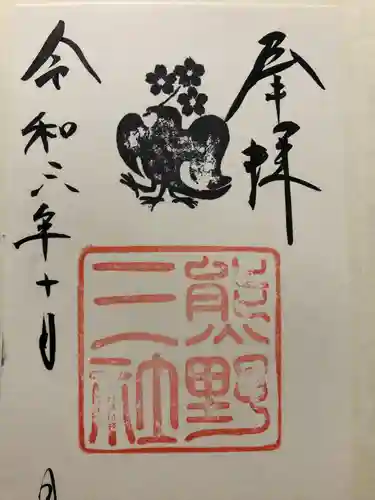 奉拝
熊野
三社
令和六年十月
日